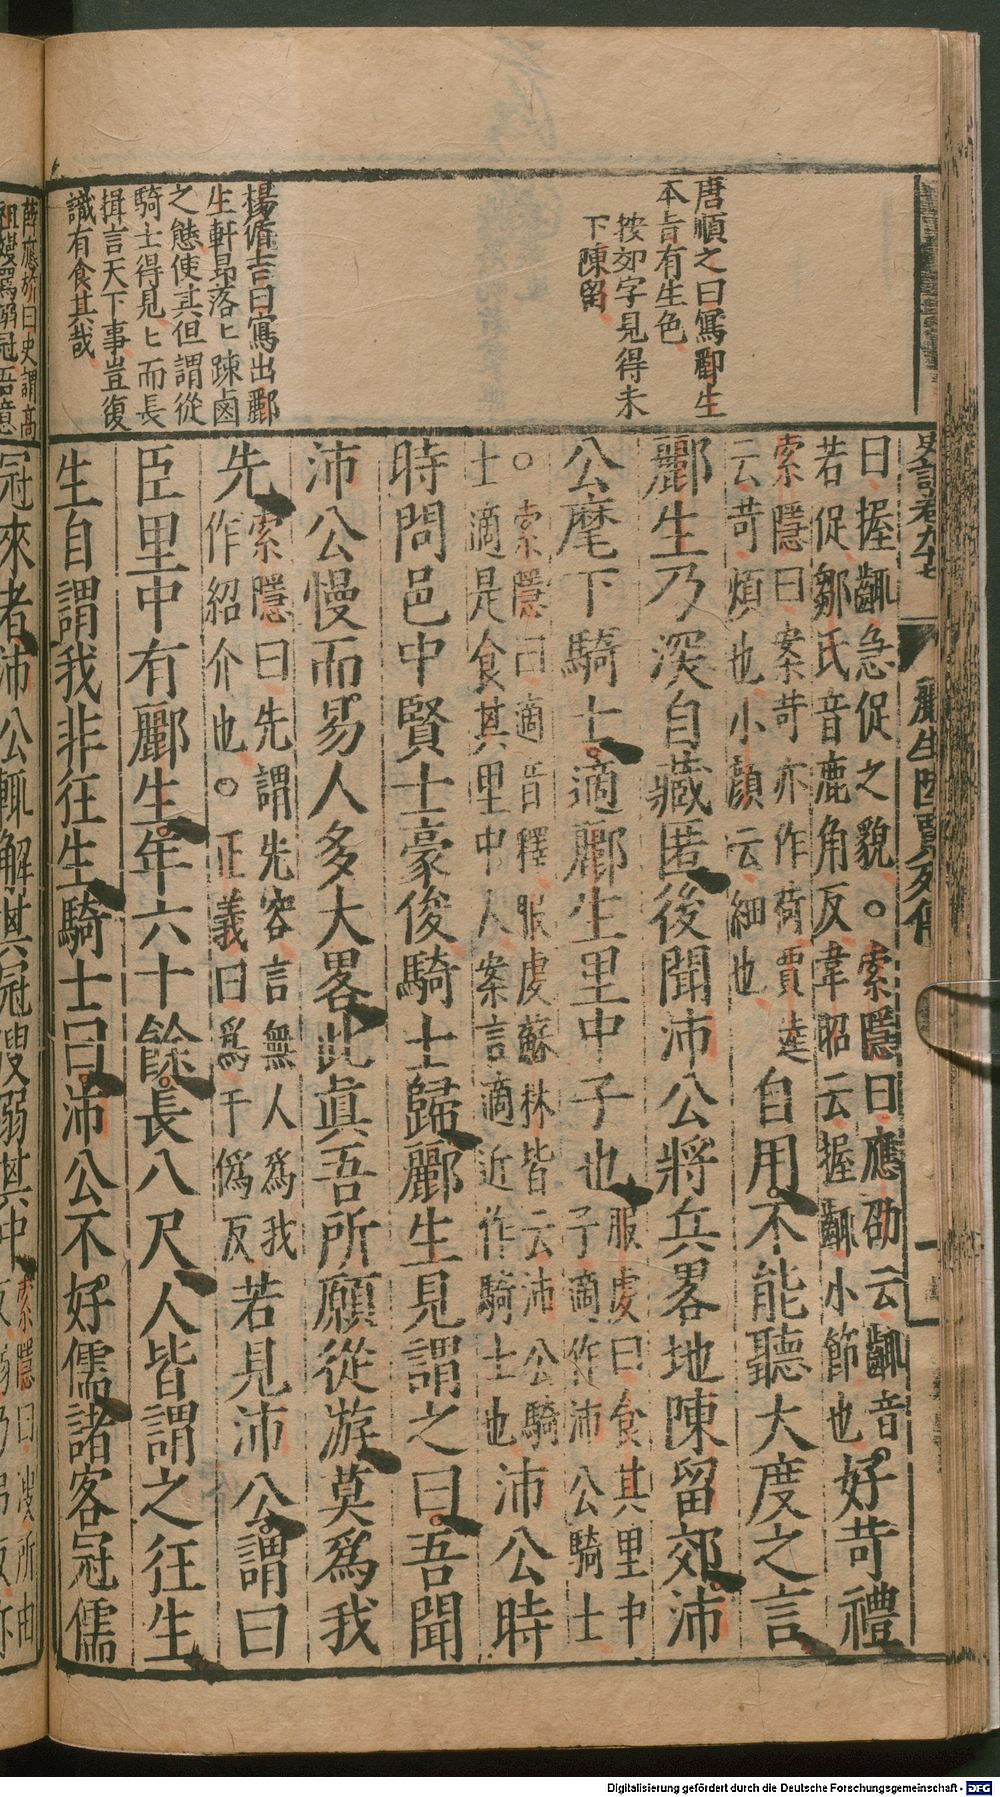 史記卷九十七　酈生陸賈列傳　一
唐順之曰寫酈生
本旨有生色
按如字見得未
下陳留
楊循吉曰寫出酈
生軒昂落匕踈鹵
之態使其但謂從
騎士得見匕而長
揖言天下事豈復
識有食其哉
曰握齱急促之貌○索隱曰應劭云齱音
若促鄒氏音鹿角反韋昭云握齱小節也
好苛禮
索隱曰案苛亦作荷賈逵
云苛煩也小顔云細也
自用不能聽大度之言
酈生乃深自藏匿後聞沛公將兵畧地陳留郊沛
公麾下騎士適酈生里中子也
服虔曰食其里中
子適作沛公騎士
○索隱曰適音釋服虔蘇林皆云沛公騎
士適是食其里中人案言適近作騎士也
沛公時
時問邑中賢士豪俊騎士歸酈生見謂之曰吾聞
沛公慢而易人多大畧此眞吾所願從游莫爲我
先
索隱曰先謂先容言無人爲我
作紹介也○正義曰爲于僞反
若見沛公謂曰
臣里中有酈生年六十餘長八尺人皆謂之狂生
生自謂我非狂生騎士曰沛公不好儒諸客冠儒
薛應旂曰史謂高
祖嫚罵溺冠吾意
冠來者沛公輒解其冠溲溺其中
索隱曰溲所由
Digitalisierung gefördert durch die Deutsche Forschungsgemeinschaft - DFG